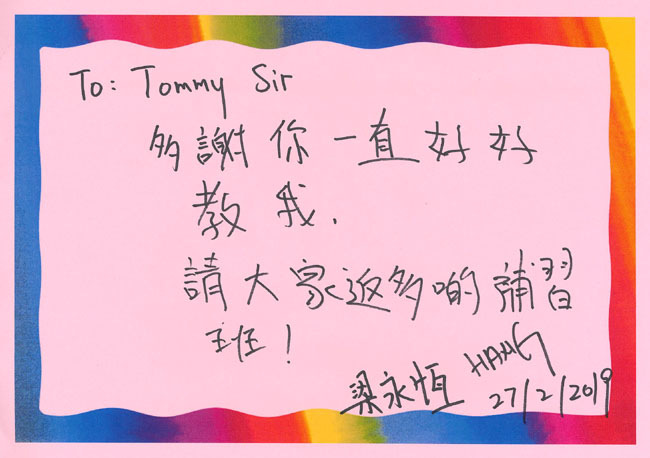 To: Tommy Sir
多謝你一直好好
教我.
請大家返多啲補習
班!
梁永恒 HANG
27/2/2019